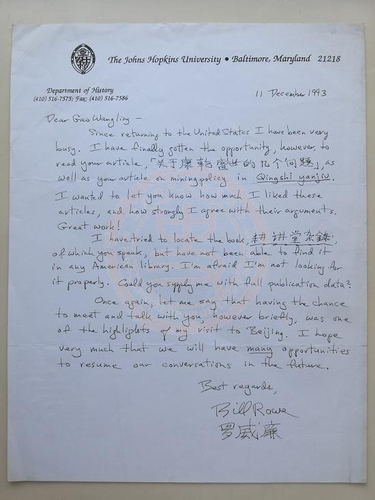 The Johns Hopkins University • Baltimore, Maryland 21218
Department of History
(410) 516-7575; Fax: (410) 516-7586
11 December 1993
Dear Gao Wangling —
Since returning to the United States I have been very
busy. I have finally gotten the opportunity, however, to
read your article, 「关于康乾盛世的几个问题」, as
well as your article on mining policy in Qingshi yanjiu.
I wanted to let you know how much I liked these
articles, and how strongly I agree with their arguments.
Great work!
I have tried to locate the book, 耕讲堂杂录
of which you speak, but have not been able to find it
in any American library. I'm afraid I'm not looking for
it properly. Could you supply me with full publication data?
Once again, let me say that having the chance
to meet and talk with you, however briefly, was one
of the highlights of my visit to Beijing. I hope
very much that we will have many opportunities
to resume our conversations in the future.
Best regards,
Bill Rowe
罗威廉